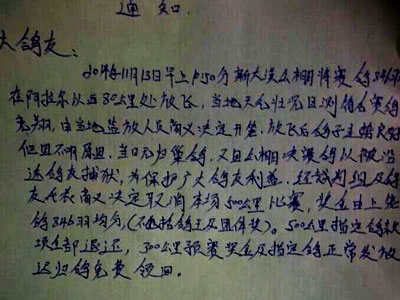 通知
大鸽友：
2014年11月13日早上10:50分新大漠公棚将赛鸽846羽
在阿拉尔以西80公里处放飞，当地天气状况目测符合赛鸽
竞翔，由当地监放人员商义决定开笼，放飞后鸽子走势良好
但因不明原因，当日无归巢鸽，又因公棚决赛鸽以被沿
途鸽友捕放，为保护广大鸽友利益，经裁判组及鸽
友代表商义决定取消本场500公里比赛，奖金由上笼
鸽846羽均分，(不包括鸽王及团体奖)。500公里指定鸽款
项全部退还，300公里预赛奖金及指定鸽正常发放
迟归鸽免费领回。